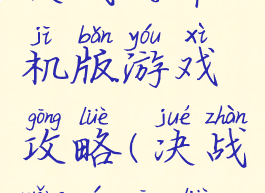 jī bǎn yóu xì
机版游戏
gōng lüè jué zhàn
攻略(决战